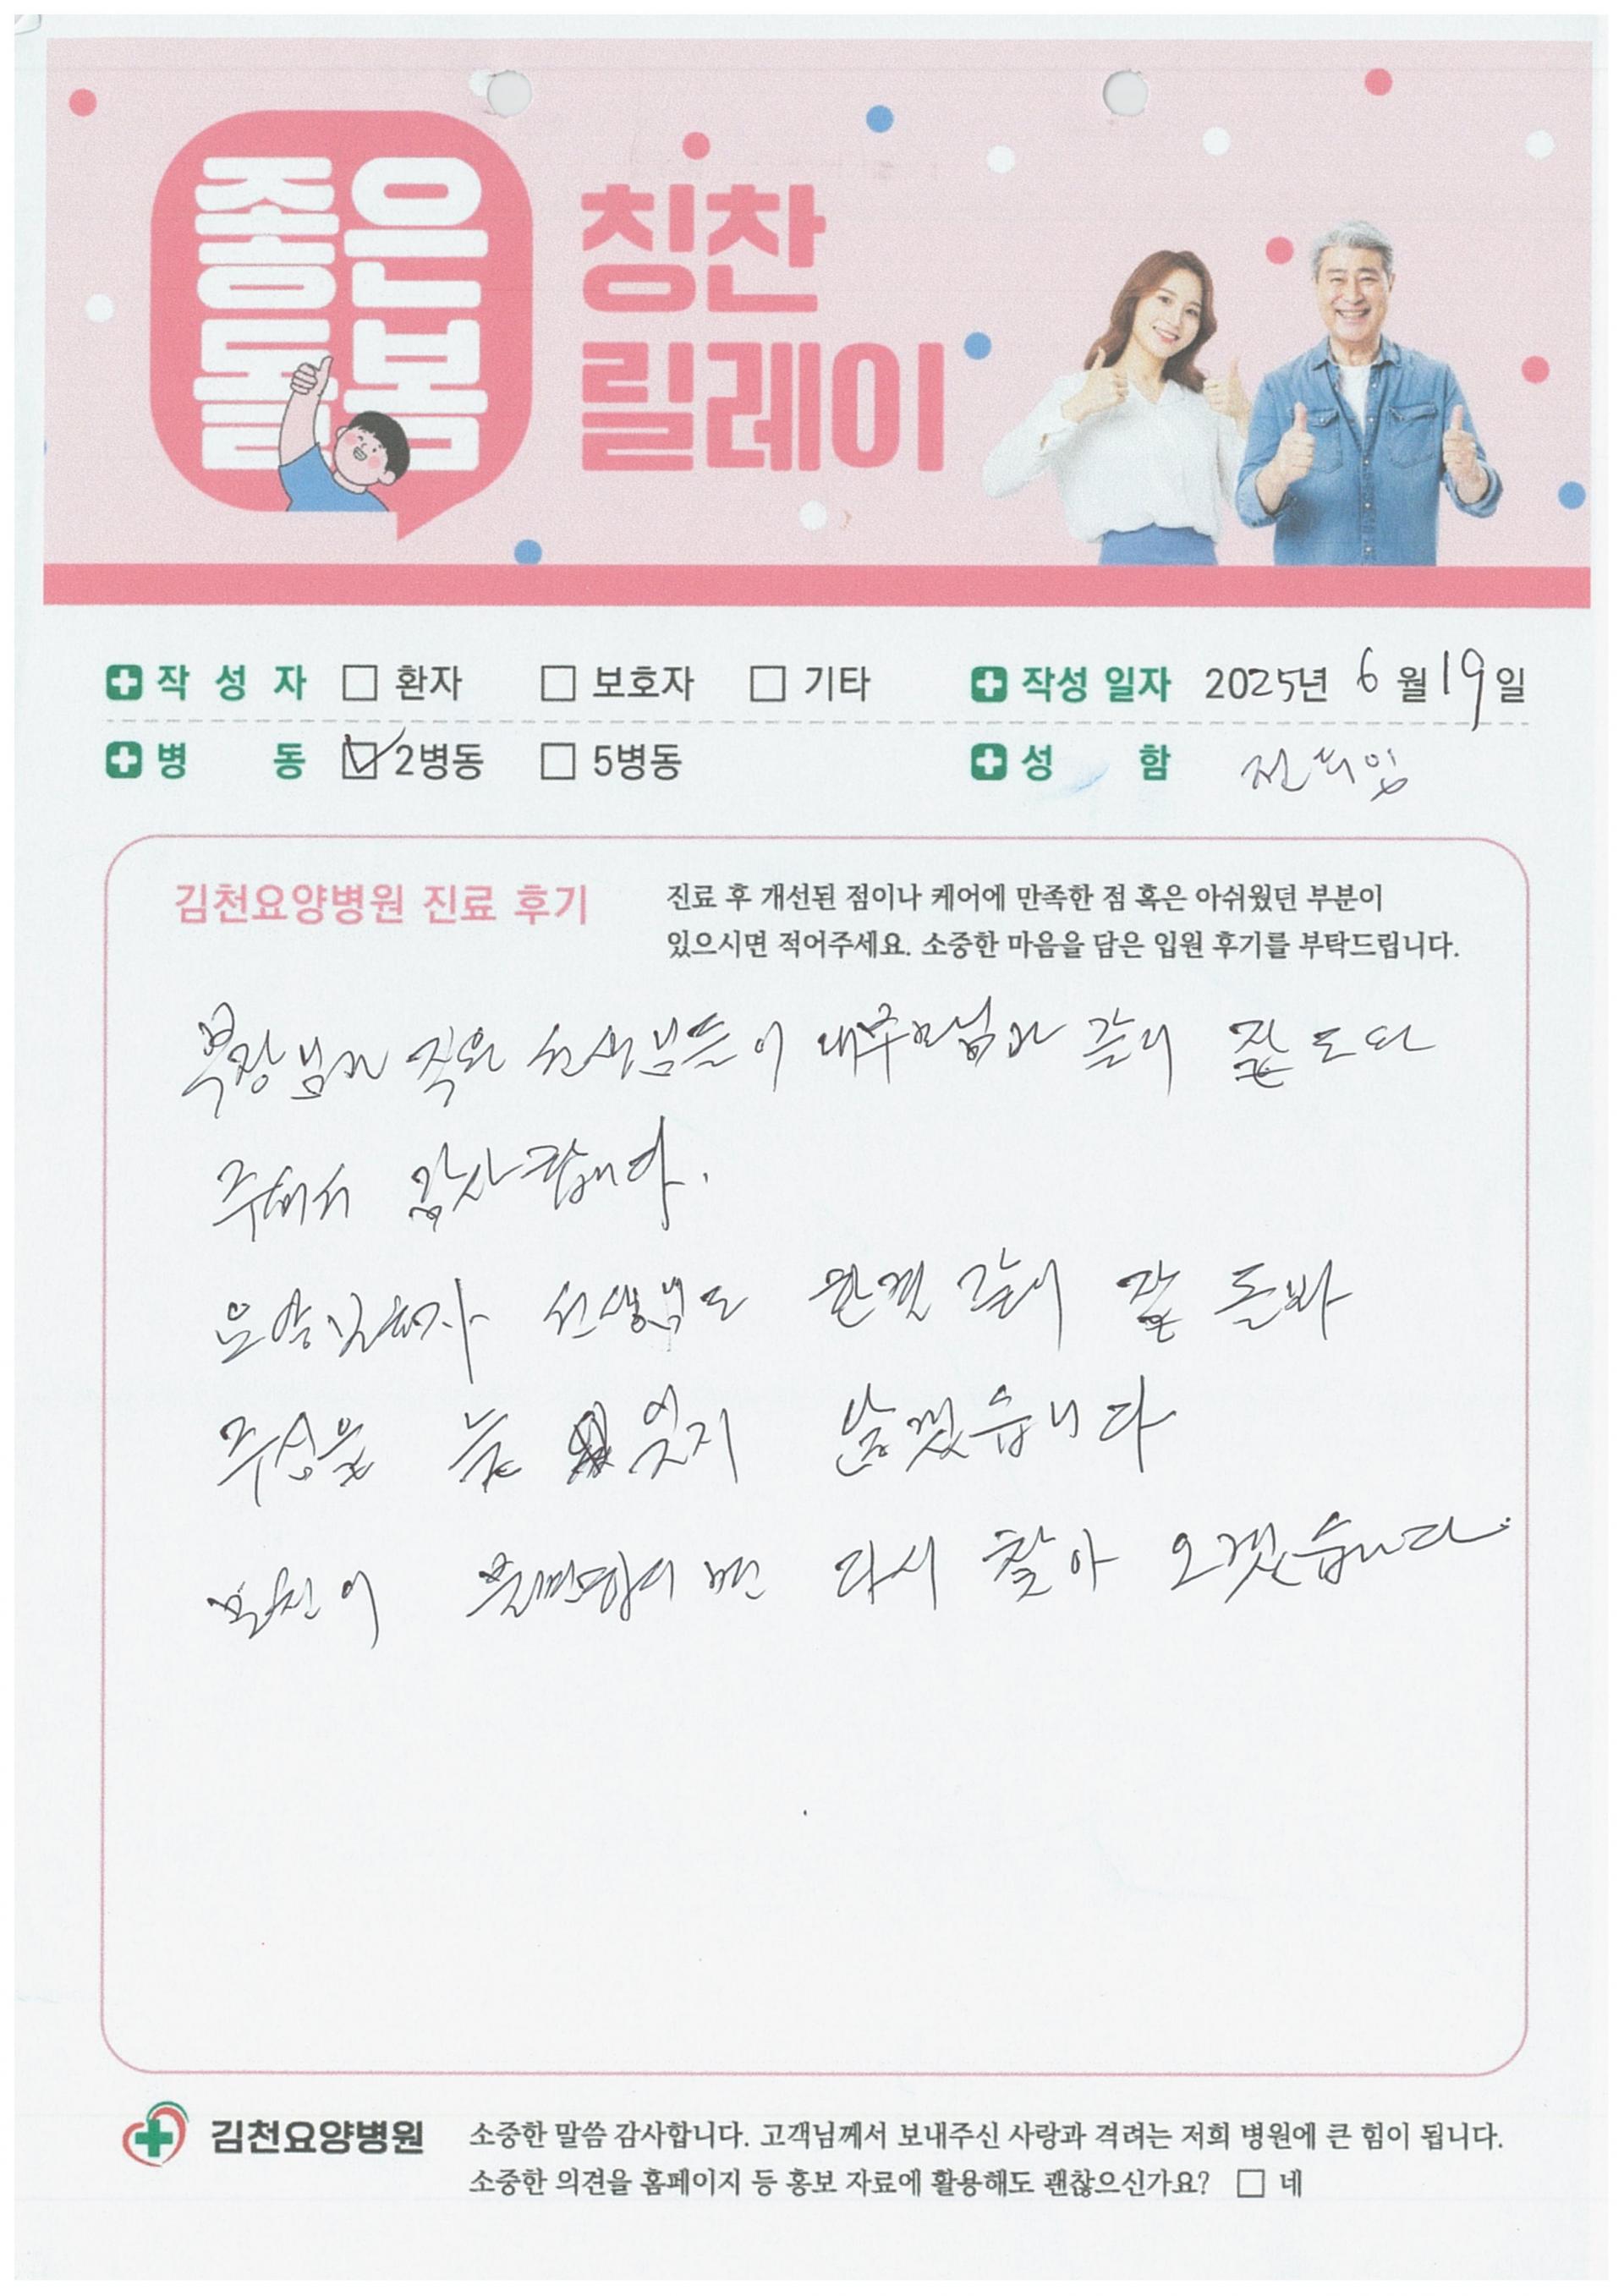 좋은
돌봄
칭찬
릴레이
작성자 환자 보호자 기타 작성 일자 2025년 6월 19일
병동 2병동 5병동 성함
김천요양병원 진료 후기
진료 후 개선된 점이나 케어에 만족한 점 혹은 아쉬웠던 부분이
있으시면 적어주세요. 소중한 마음을 담은 입원 후기를 부탁드립니다.
부장님과 직원 선생님들이 같이 잘
주셔서 감사합니다.
선생님도 한결 같이 잘 돌봐
주심을 늘 잊지 않겠습니다
다시 찾아 오겠습니다
김천요양병원
소중한 말씀 감사합니다. 고객님께서 보내주신 사랑과 격려는 저희 병원에 큰 힘이 됩니다.
소중한 의견을 홈페이지 등 홍보 자료에 활용해도 괜찮으신가요? 네